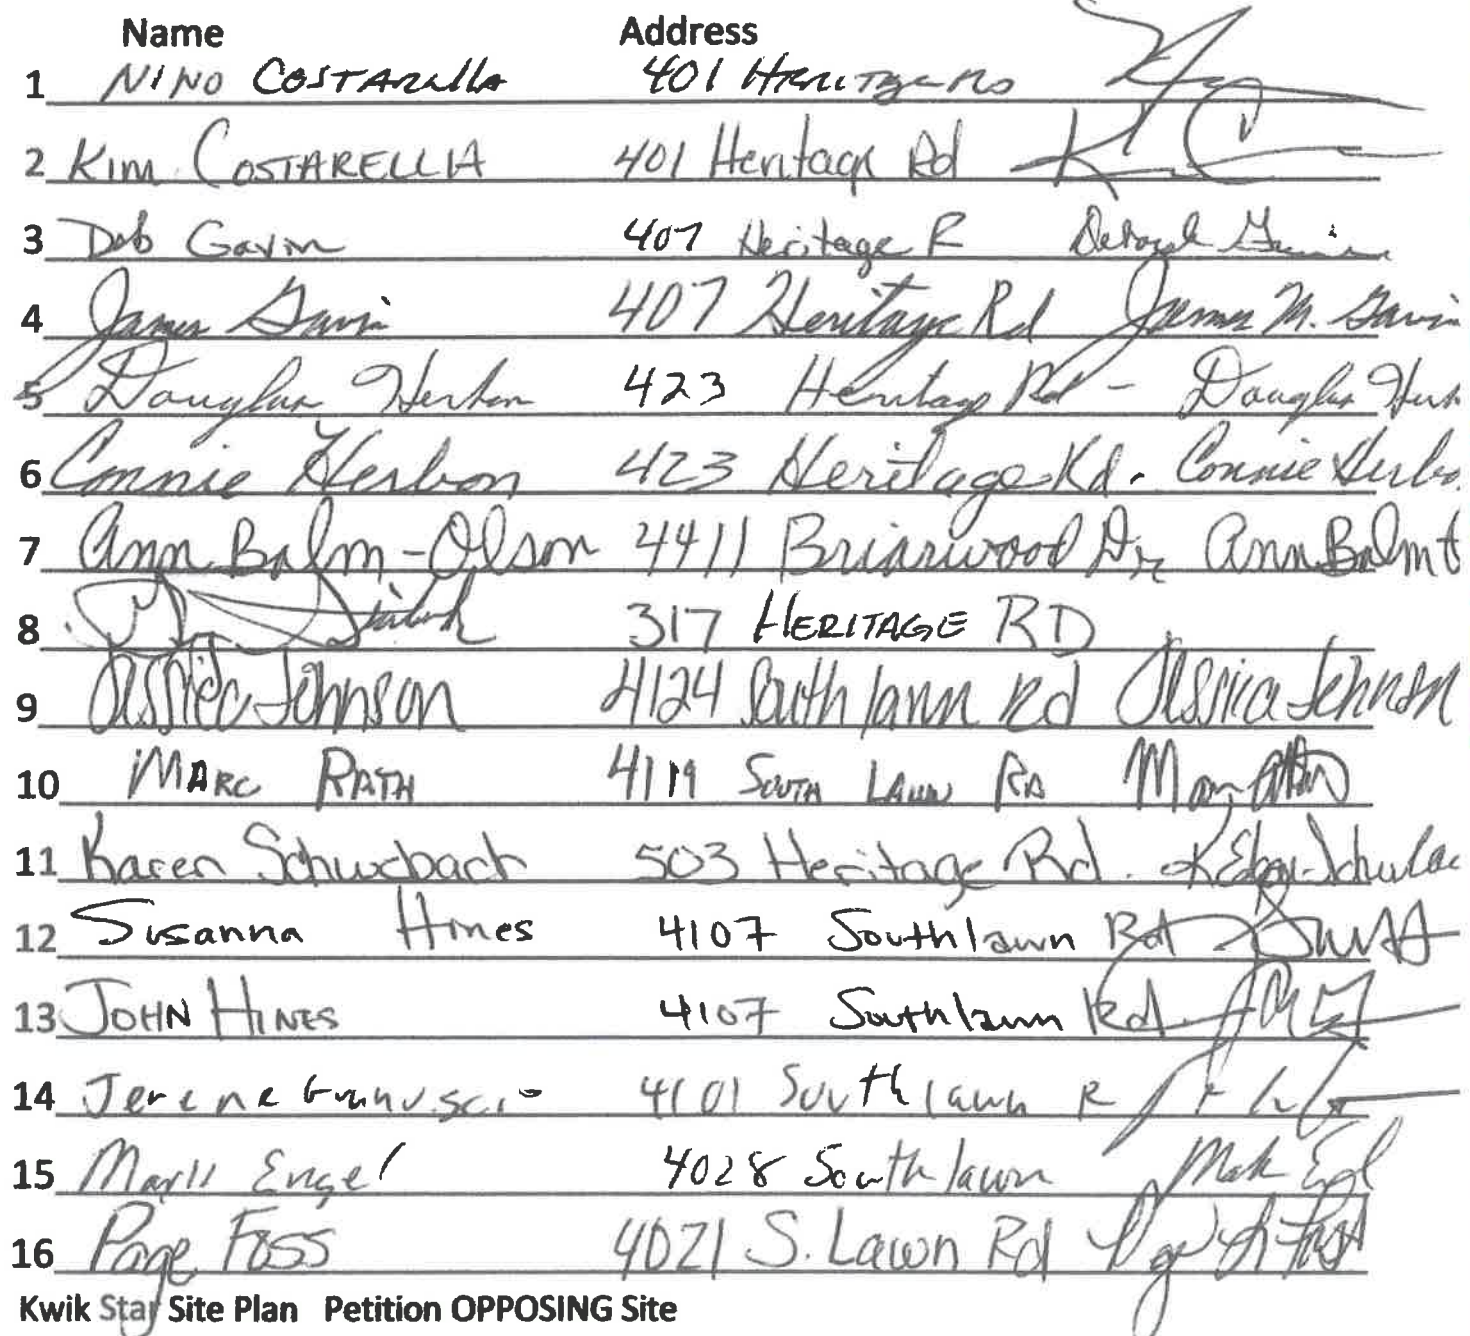 Name Address
1 NINO COSTARELLA 401 HERITAGE RD
2 KIM COSTARELLIA 401 Heritage Rd
3 Deb Gavin 407 Heritage R Deborah Gavin
4 James Gavin 407 Heritage Rd James M. Gavin
5 Douglas Herbon 423 Heritage Rd - Douglas Herb
6 Connie Herbon 423 Heritage Rd. Connie Herbo
7 Ann Balm-Olson 4411 Briarwood Dr Ann Balm
8 317 HERITAGE RD
9 Jessica Johnson 4124 South lawn Rd Jessica Johnson
10 MARC RATH 4119 SOUTH LAWN RD
11 Karen Schwebach 503 Heritage Rd.
12 Susanna Hines 4107 Southlawn Rd
13 JOHN HINES 4107 Southlawn Rd.
14 Jerene 4101 Southlawn R
15 Mark Engel 4028 Southlawn Mark Engel
16 Page Foss 4021 S. Lawn Rd
Kwik Star Site Plan Petition OPPOSING Site